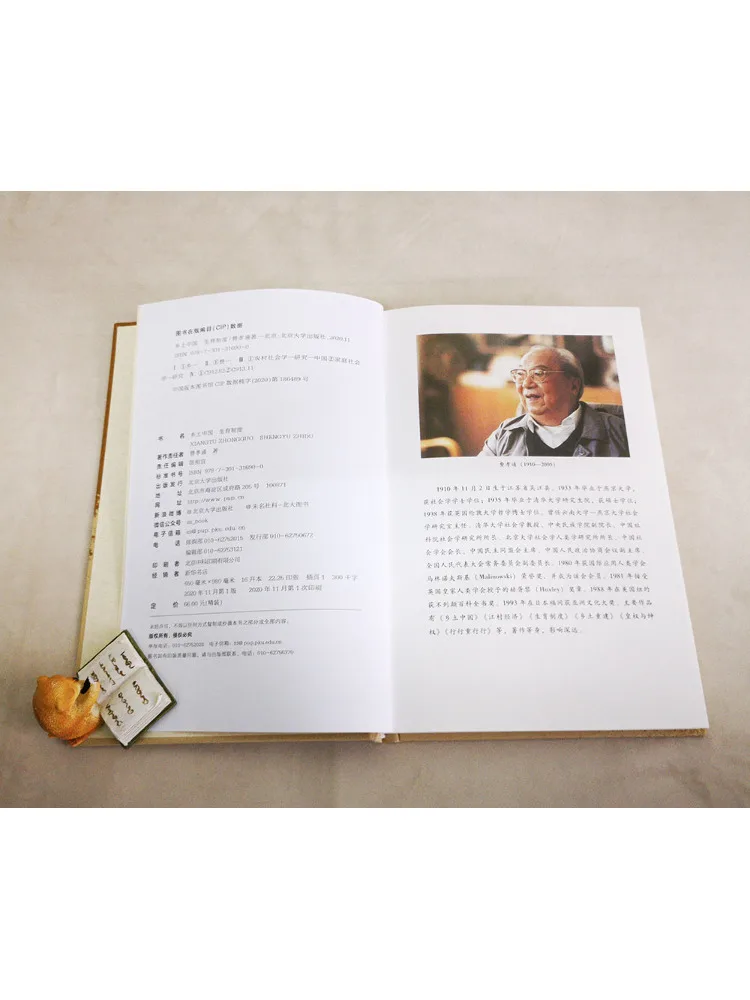 图书在版编目(CIP)数据
乡土中国 生育制度 / 费孝通著.—北京:北京大学出版社,2020.11
ISBN 978-7-301-31600-0
中国版本图书馆CIP数据核字(2020)第
书 名 乡土中国 生育制度
XIANGTU ZHONGGUO SHENGYU ZHIDU
著作责任者 费孝通 著
责任编辑
标准书号
出版发行 北京大学出版社
地 址 北京市海淀区成府路205号 100871
网 址 http://www.pup.cn
新浪微博 @北京大学出版社 @未名社科-北大图书
微信公众号 ss_book
电子信箱 ss@pup.pku.edu.cn
电 话 邮购部 010-62752015 发行部 010-62750672
编辑部 010-62753121
印 刷 者
经 销 者 新华书店
650毫米×980毫米 16开本 22.25印张 插页1
2020年11月第1版 2020年11月第1次印刷
定 价 66.00元(精装)
未经许可,不得以任何方式复制或抄袭本书之部分或全部内容。
版权所有,侵权必究
举报电话:010-62752024 电子信箱:fd@pup.pku.edu.cn
图书如有印装质量问题,请与出版部联系,电话:010-62756370
费孝通(1910—2005)
1910年11月2日生于江苏省吴江县。1933年毕业于燕京大学,
获社会学学士学位;1935年毕业于清华大学研究生院,获硕士学位;
1938年获英国伦敦大学哲学博士学位。曾任云南大学—燕京大学社会
学研究室主任,清华大学社会学教授,中央民族学院副院长,中国社
科院社会学研究所所长,北京大学社会学人类学研究所所长,中国社
会学会会长,中国民主同盟主席,中国人民政治协商会议副主席,
全国人民代表大会常务委员会副委员长。1980年获国际应用人类学会
马林诺夫斯基(Malinowski)荣誉奖,并成为该会会员。1981年接受
英国皇家人类学会授予的赫胥黎(Huxley)奖章。1988年在美国纽约
获不列颠百科全书奖。1993年在日本福冈获亚洲文化大奖。主要作品
有《乡土中国》《江村经济》《生育制度》《乡土重建》《皇权与绅
权》《行行重行行》等,著作等身,影响深远。